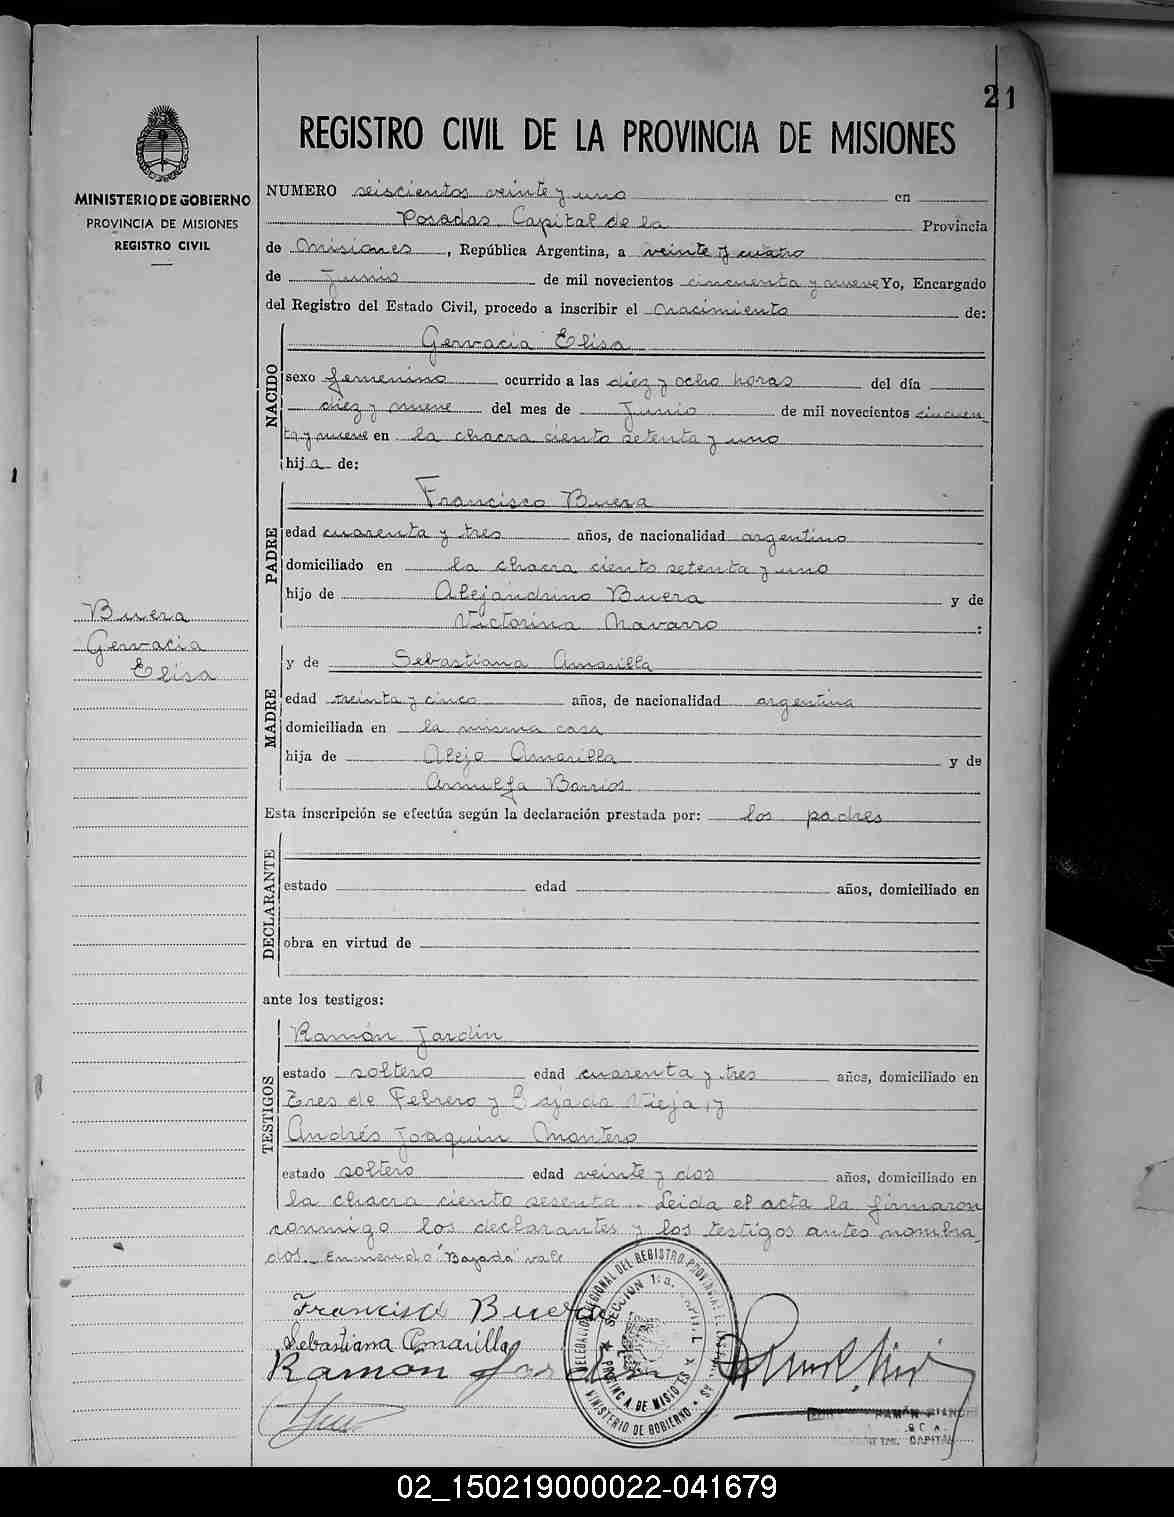 21
REGISTRO CIVIL DE LA PROVINCIA DE MISIONES
MINISTERIO DE GOBIERNO
PROVINCIA DE MISIONES
REGISTRO CIVIL
NUMERO seiscientos veinte y uno en
Posadas Capital de la Provincia
de Misiones, República Argentina, a veinte y cuatro
de Junio de mil novecientos cincuenta y nueve Yo, Encargado
del Registro del Estado Civil, procedo a inscribir el nacimiento de:
NACIDO
Gervacia Elisa
sexo femenino ocurrido a las diez y ocho horas del día
diez y nueve del mes de Junio de mil novecientos cincuen
ta y nueve en la chacra ciento setenta y uno
hija de:
PADRE
Francisco Buera
edad cuarenta y tres años, de nacionalidad argentino
domiciliado en la chacra ciento setenta y uno
hijo de Alejandrino Buera y de
Victorina Navarro :
Buera
Gervacia
Elisa
MADRE
y de Sebastiana Amarilla
edad treinta y cinco años, de nacionalidad argentina
domiciliada en la misma casa
hija de Alejo Amarilla y de
Arnulfa Barrios
Esta inscripción se efectúa según la declaración prestada por: los padres
DECLARANTE
estado edad años, domiciliado en
obra en virtud de
ante los testigos:
TESTIGOS
Ramón Jardin
estado soltero edad cuarenta y tres años, domiciliado en
Tres de Febrero y Bajada Vieja, y
Andrés Joaquin Montero
estado soltero edad veinte y dos años, domiciliado en
la chacra ciento sesenta.. Leida el acta la firmaron
conmigo los declarantes y los testigos antes nombra
dos.. Enmendo "Bajada" vale
Francisco Buera
Sebastiana Amarilla
Ramón Jardin
DELEGACION REGIONAL DEL REGISTRO PROVINCIAL DE LAS
SECCION 1ra. CAPITAL
PROVINCIA DE MISIONES
MINISTERIO DE GOBIERNO
RAMÓN
CAPITAL
02_150219000022-041679